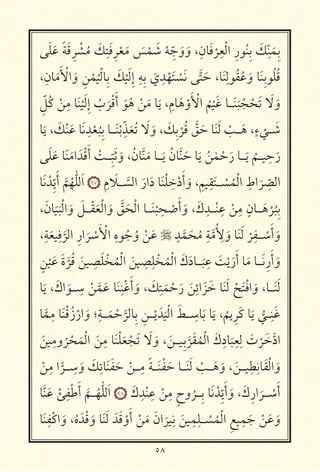 بِمَنِّكَ بِنُورِ الْعِرْفَانِ، وَوَجِّهْ شَمْسَ مَعْرِفَتِكَ مُشْرِقَةً عَلَى
قُلُوبِنَا وَعُقُولِنَا، حَتَّى نَسْتَهْدِيَ بِهِ إِلَيْكَ بِالْيُمْنِ وَالْأَمَانِ،
وَلَا تَحْجُبْنَا غَيْمُ الْأَوْهَامِ، يَا مَنْ هُوَ أَقْرَبُ إِلَيْنَا مِنْ كُلِّ
شَيْءٍ، هَبْ لَنَا حَقَّ قُرْبِكَ، وَلَا تُعَذِّبْنَا بِبُعْدِنَا عَنْكَ، يَا
رَحِيمُ يَا رَحْمٰنُ يَا حَنَّانُ يَا مَنَّانُ، وَثَبِّتْ أَقْدَامَنَا عَلَى
الصِّرَاطِ الْمُسْتَقِيمِ، وَأَدْخِلْنَا دَارَ السَّلَامِ ﴿١٧﴾ اَللّٰهُمَّ أَيِّدْنَا
بِبُرْهَانٍ مِنْ عِنْدِكَ، وَأَصْحِبْنَا الْحَقَّ وَالْعَقْلَ وَالْبَيَانَ،
وَاسْفِرْ لَنَا وَلِأُمَّةِ مُحَمَّدٍ ﷺ عَنْ وُجُوهِ أَسْرَارِ الرَّفِيعَةِ،
وَأَرِنَا مَا أَرَيْتَ عِبَادَكَ الْمُخْلِصِينَ الْمُخْلَصِينَ قُرَّةَ عَيْنٍ
لَنَا، وَافْتَحْ لَنَا خَزَائِنَ رَحْمَتِكَ، وَأَغْنِنَا عَمَّنْ سِوَاكَ، يَا
غَنِيُّ يَا كَرِيمُ، يَا بَاسِطَ الْيَدَيْنِ بِالرَّحْمَةِ؛ وَارْزُقْنَا مِمَّا
ادَّخَرْتَ لِعِبَادِكَ الْمُقَرَّبِينَ، وَلَا تَجْعَلْنَا مِنَ الْمَحْرُومِينَ
وَالْقَانِطِينَ، وَهَبْ لَنَا نَفْحَةً مِنْ نَفَحَاتِكَ وَسِرًّا مِنْ
أَسْرَارِكَ، وَأَيِّدْنَا بِرُوحٍ مِنْ عِنْدِكَ ﴿١٨﴾ اَللّٰهُمَّ أَطْفِئْ عَنَّا
وَعَنْ جَمِيعِ الْمُسْلِمِينَ نِيرَانَ مَنْ أَوْقَدَ لَنَا وَقُدَهُ، وَاكْفِنَا
٥٨